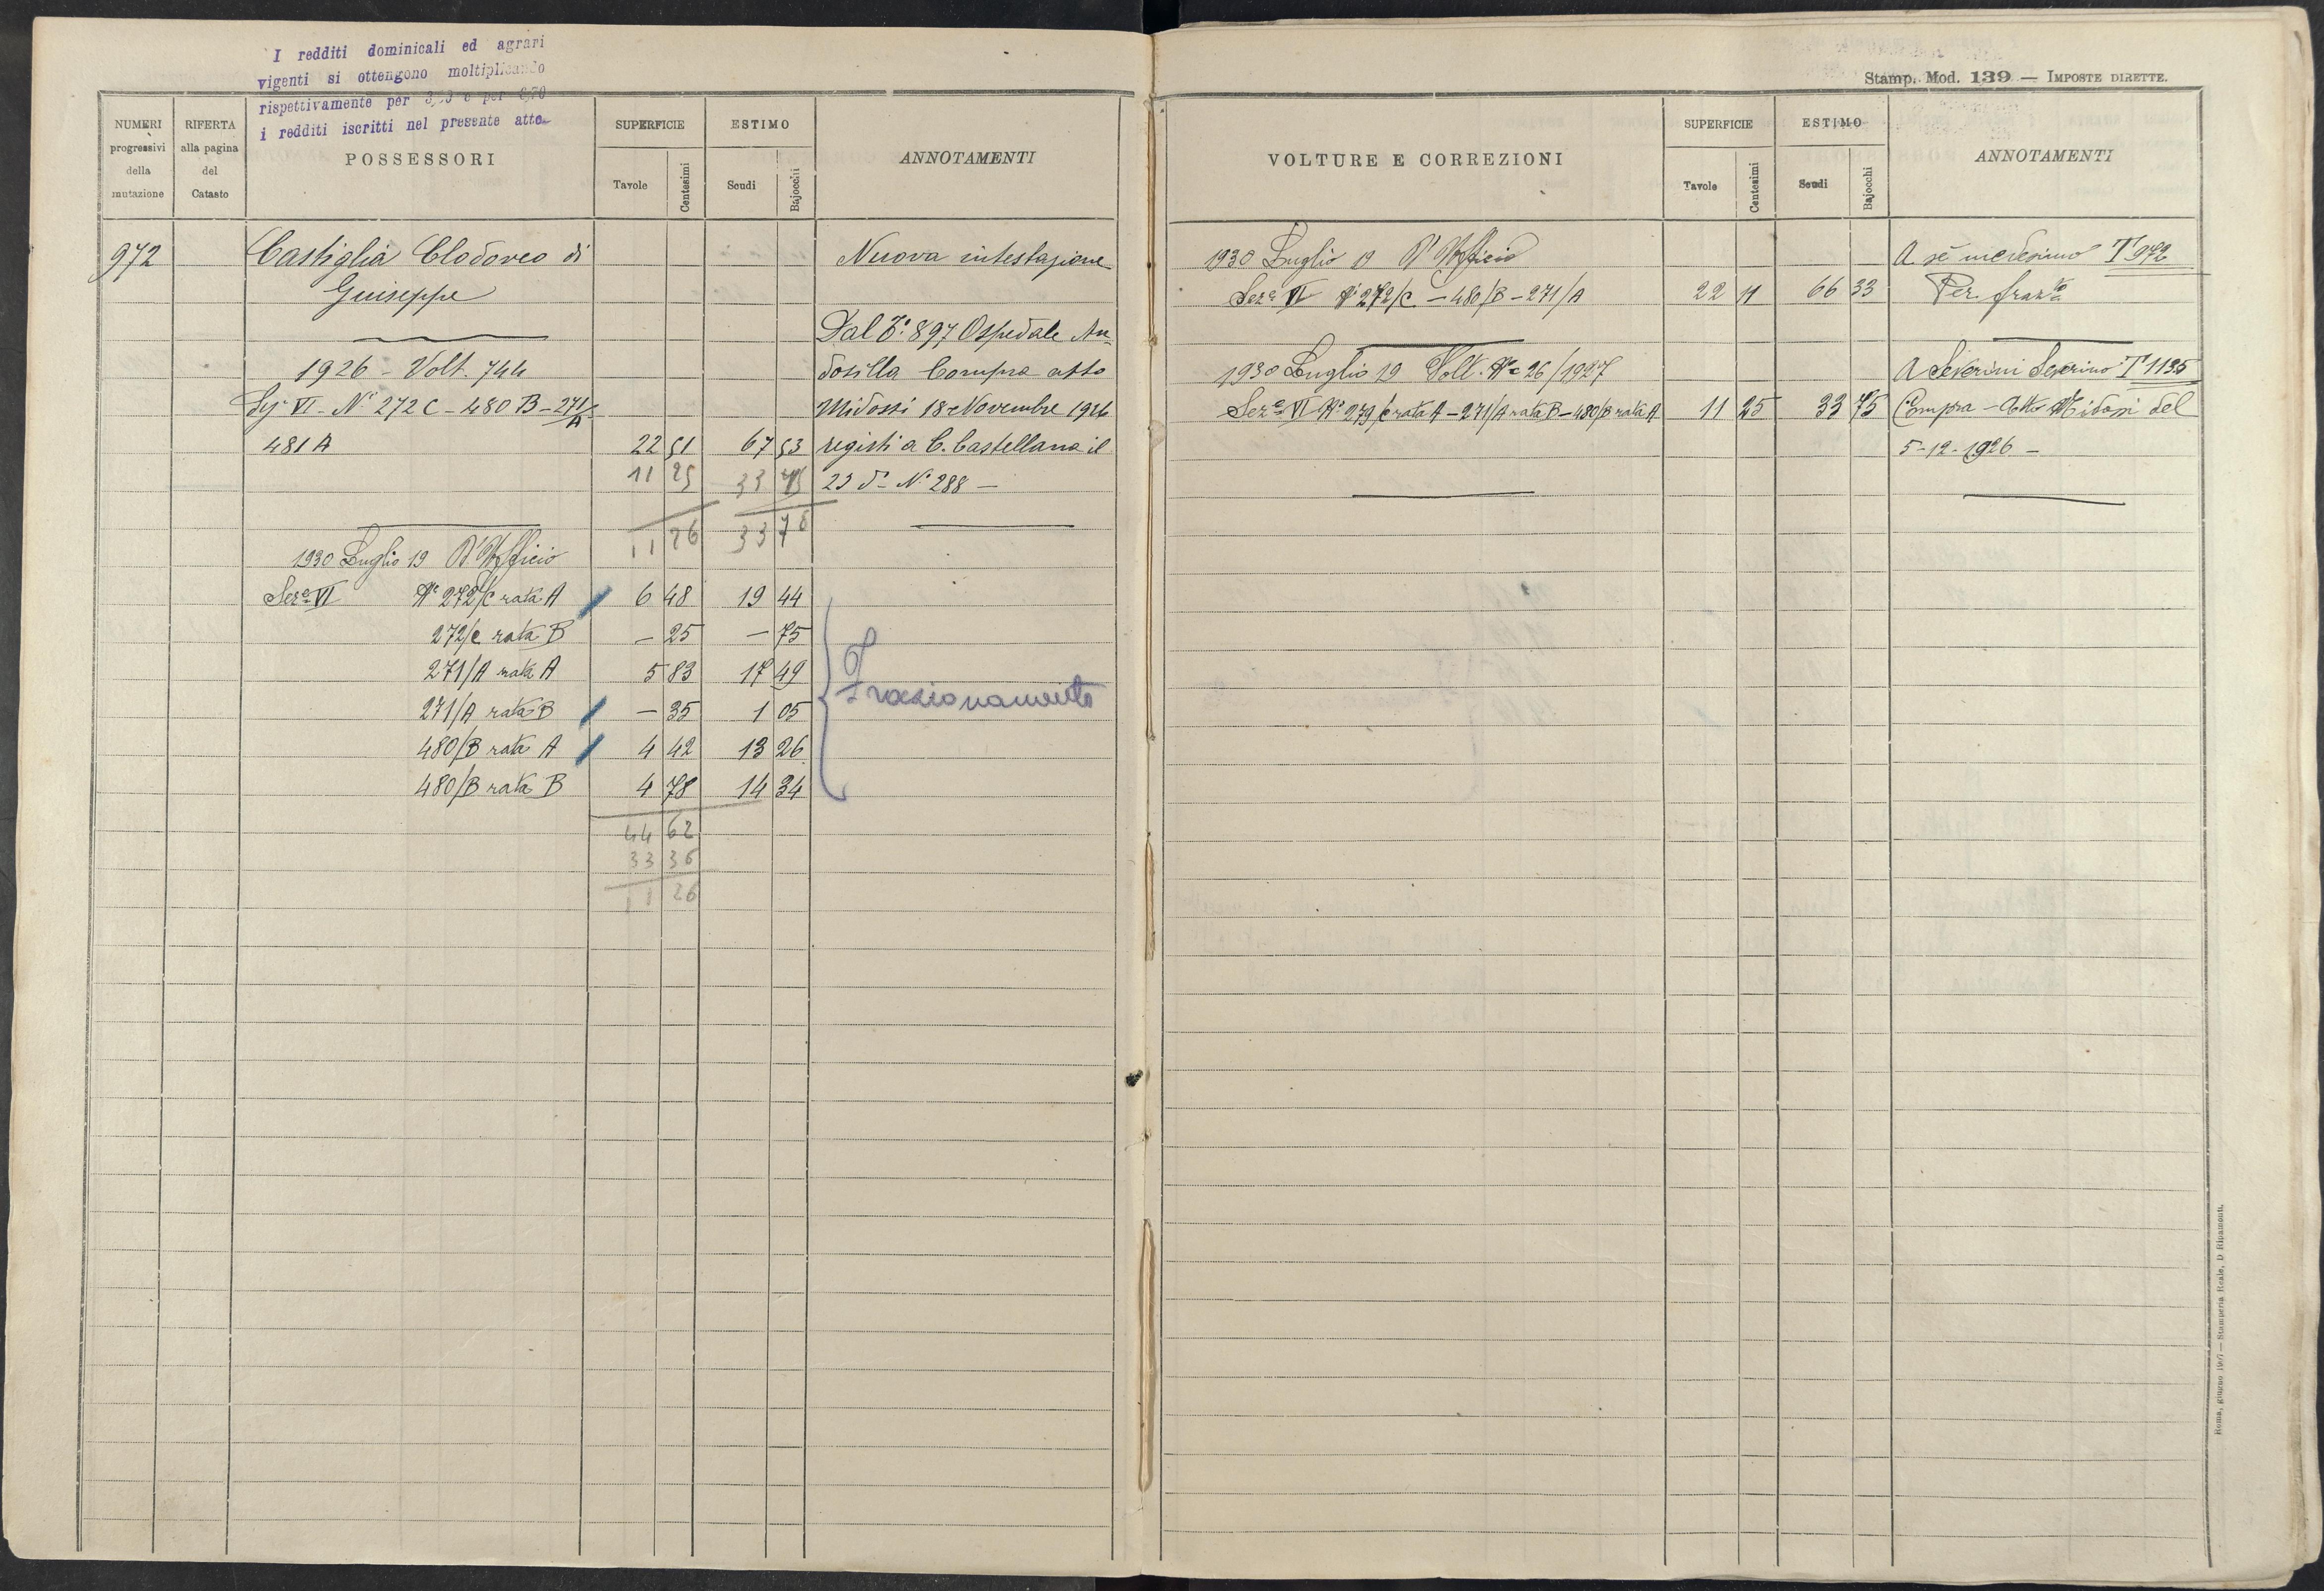 I redditi dominicali ed agrari
vigenti si ottengono moltiplicando
rispettivamente per e per
i redditi iscritti nel presente atto
NUMERI progressivi della mutazione
RIFERTA alla pagina del Catasto
POSSESSORI
SUPERFICIE
Tavole
Centesimi
ESTIMO
Scudi
Bajocchi
ANNOTAMENTI
972 Castiglia Clodoveo di Nuova intestazione
Giuseppe
Dal T.° 897 Ospedale An-
1926 - Volt. 744 dosilla Compra atto
Sez VI - N° 272 C - 480 B - 271/A Midossi 18 Novembre 1926
481 A 22 51 67 53 registi a C. Castellana il
11 25 33 75 23 d° N° 288 -
11 26 33 78
1930 Luglio 19 D'Ufficio
Seze VI N° 272/C rata A 6 48 19 44
272/C rata B - 25 - 75
271/A rata A 5 83 17 49
Frazionamento
271/A rata B - 35 1 05
480/B rata A 4 42 13 26
480/B rata B 4 78 14 34
44 62
33 36
11 26
Stamp. Mod. 139 — IMPOSTE DIRETTE.
VOLTURE E CORREZIONI
SUPERFICIE
Tavole
Centesimi
ESTIMO
Scudi
Bajocchi
ANNOTAMENTI
1930 Luglio 19 D'Ufficio A sè medesimo T 972
Seze VI N° 272/C - 480/B - 271/A 22 11 66 33 Per frazto
1930 Luglio 19 Volt. N° 26/1927 A Severini Severino T 1135
Seze VI N° 279/C rata A - 271/A rata B - 480/B rata A 11 25 33 75 Compra - Atto Midossi del
5-12-1926 -
Roma, giugno — Stamperia Reale, D. Ripamonti.